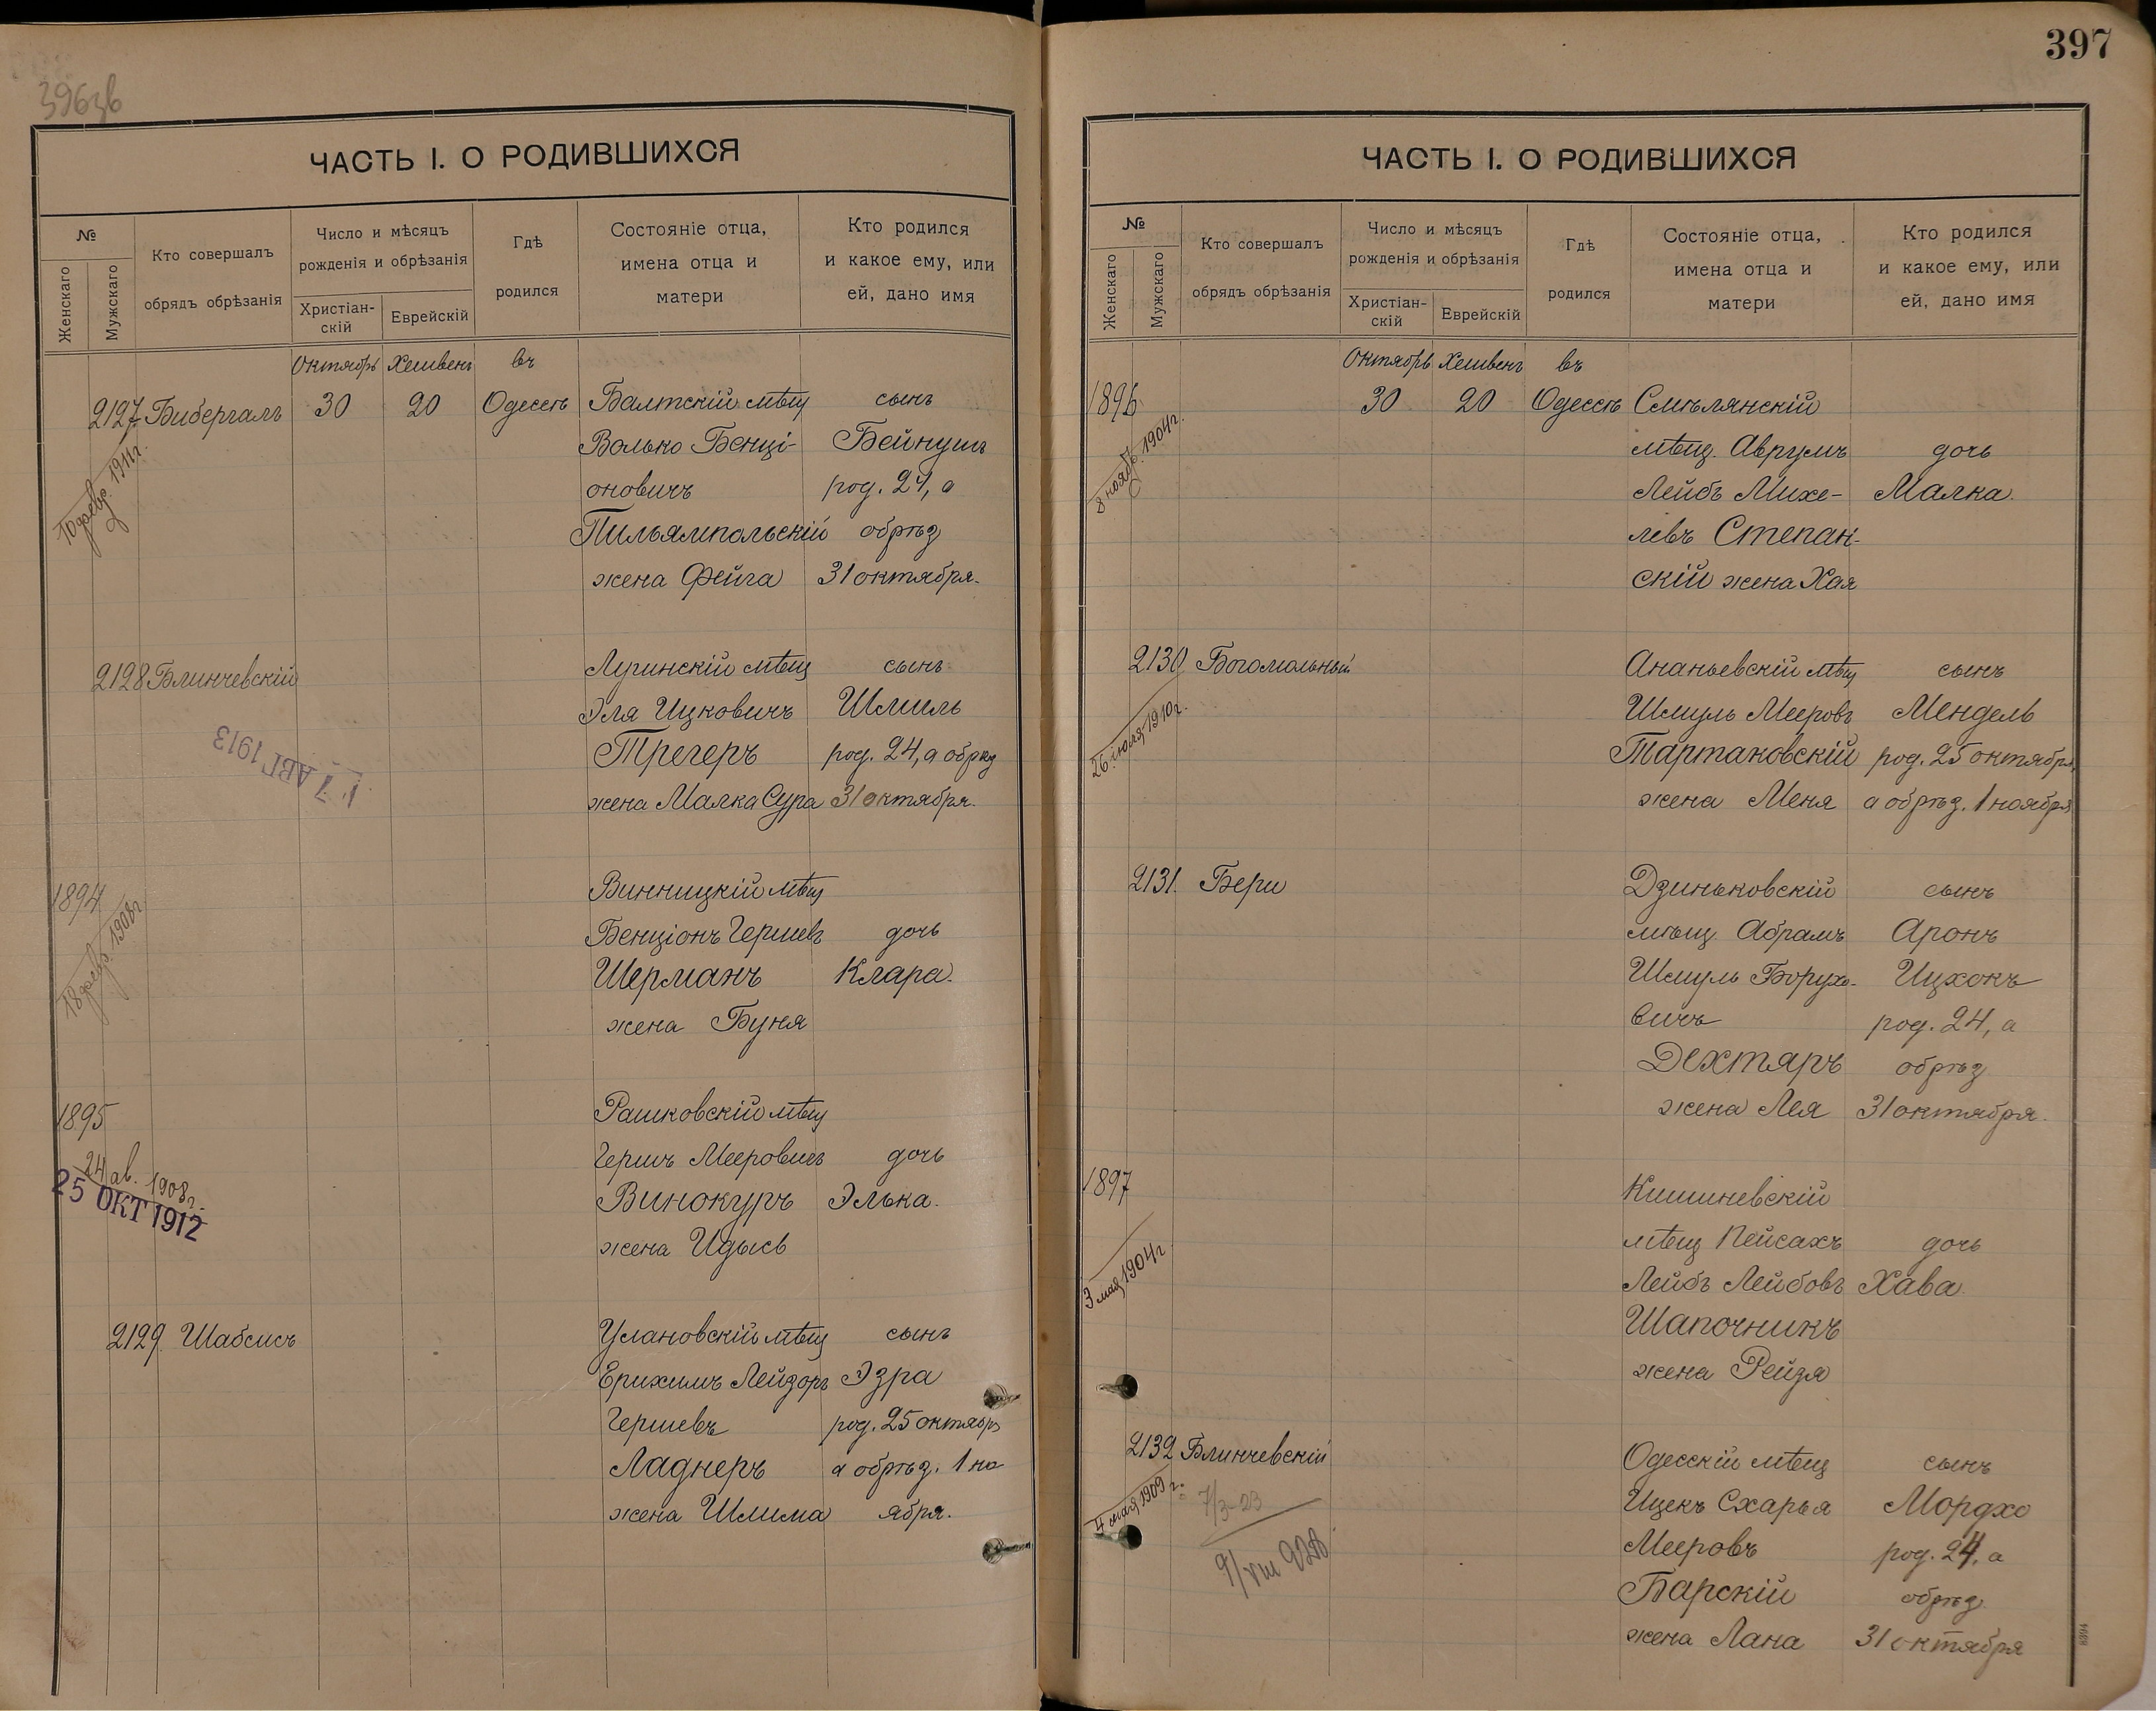 396зв
ЧАСТЬ I. О РОДИВШИХСЯ
№
Женскаго
Мужскаго
Кто совершалъ
обрядъ обрѣзанія
Число и мѣсяцъ
рожденія и обрѣзанія
Христіан-
скій
Еврейскій
Гдѣ
родился
Состояніе отца,
имена отца и
матери
Кто родился
и какое ему, или
ей, дано имя
Октябрь Хешвенъ въ
2127 Бибергалъ 30 20 Одессѣ Балтскій мѣщ сынъ
Волько Бенці- Бейнушъ
оновичъ род. 24, а
Пильямпольскій обрѣз
жена Фейга 31 октября.
10 февр. 1911 г.
2128 Блинчевскій Лугинскій мѣщ сынъ
Эля Ицковичъ Шмиль
Трегеръ род. 24, а обрѣз
жена Малка Сура 31 октября.
17 АВГ 1913
1894 Винницкій мѣщ
Бенціонъ Гершевъ дочь
Шерманъ Клара.
жена Буня
18 февр. 1908 г.
1895 Рашковскій мѣщ
Гершъ Мееровичъ дочь
Винокуръ Элька.
жена Идысь
24 ав. 1908 г.
25 ОКТ 1912
2129 Шабсисъ Улановскій мѣщ сынъ
Ерихимъ Лейзоръ Эзра
Гершевъ род. 25 октябр
Ладнеръ а обрѣз. 1 но
жена Шлима ября.
397
ЧАСТЬ I. О РОДИВШИХСЯ
№
Женскаго
Мужскаго
Кто совершалъ
обрядъ обрѣзанія
Число и мѣсяцъ
рожденія и обрѣзанія
Христіан-
скій
Еврейскій
Гдѣ
родился
Состояніе отца,
имена отца и
матери
Кто родился
и какое ему, или
ей, дано имя
Октябрь Хешвенъ въ
1896 30 20 Одессѣ Смѣлянскій
мѣщ. Аврумъ дочь
Лейбъ Михе- Малка.
левъ Степан-
скій жена Хая
8 нояб. 1904 г.
2130 Богомольный Ананьевскій мѣщ сынъ
Шмуль Мееровъ Мендель
Тартаковскій род. 25 октября,
жена Меня а обрѣз. 1 ноября
26 іюля 1910 г.
2131. Бери Дзиньковскій сынъ
мѣщ. Абрамъ Аронъ
Шмуль Борухо- Ицхокъ
вичъ род. 24, а
Дехтяръ обрѣз
жена Лея 31 октября.
1897 Кишиневскій
мѣщ Пейсахъ дочь
Лейбъ Лейбовъ Хава.
Шапочникъ
жена Рейзя
3 мая 1904 г
2132 Блинчевскій Одесскій мѣщ сынъ
Ицекъ Схарья Мордхо
Мееровъ род. 24, а
Барскій обрѣз.
жена Лана 31 октября
4 мая 1909 г.
7/3-23
8394